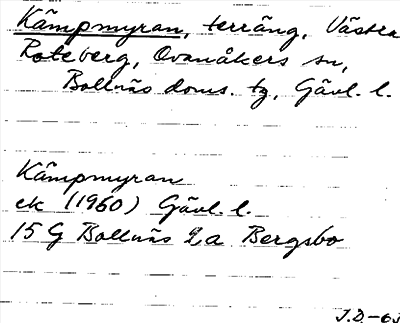 Kämpmyran, terräng, Västra
Roteberg, Ovanåkers sn,
Bollnäs doms. tg, Gävl. l.
Kämpmyran
ek (1960) Gävl. l.
15 G Bollnäs 2 a Bergsbo
J.D.-63